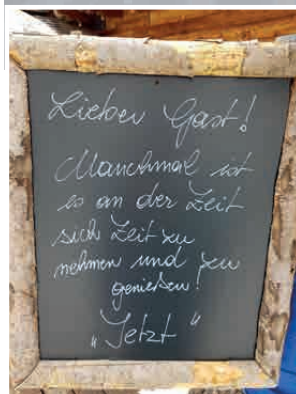 Lieber Gast!
Manchmal ist
es an der Zeit
sich Zeit zu
nehmen und zu
genießen!
„Jetzt“